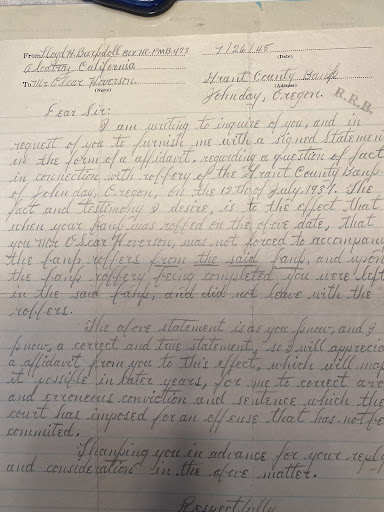 From Lloyd H. Barkdoll Box No. PMB 423
7/26/45
(Date)
Alcatraz, California
Grant County Bank
To Mr. Oscar Hoverson.
(Name)
(Address)
John day, Oregon.
R.R.B.
Dear Sir:
I am writing to inquire of you, and in
request of you to furnish me with a signed Statement
in the form of a affidavit, regarding a question of fact
in connection with robbery of the Grant County Bank
of John day, Oregon, on the 12th of July 1937. The
fact and testimony I desire, is to the effect that
when your bank was robbed on the above date, that
you Mr. Oscar Hoverson, was not forced to accompany
the bank robbers from the said bank, and upon
the bank robbery being completed you were left
in the said bank, and did not leave with the
robbers.
The above statement is as you know, and I
know, a correct and true statement, so I will apprecia
a affidavit from you to this effect, which will mak
it possible in later years, for me to correct a
and erroneous conviction and sentence which the
court has imposed for an offense that has not be
commited.
Thanking you in advance for your reply
and consideration in the above matter.
Respectfully